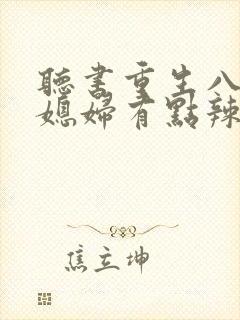 聽書重生八
媳婦有點辣
焦立坤